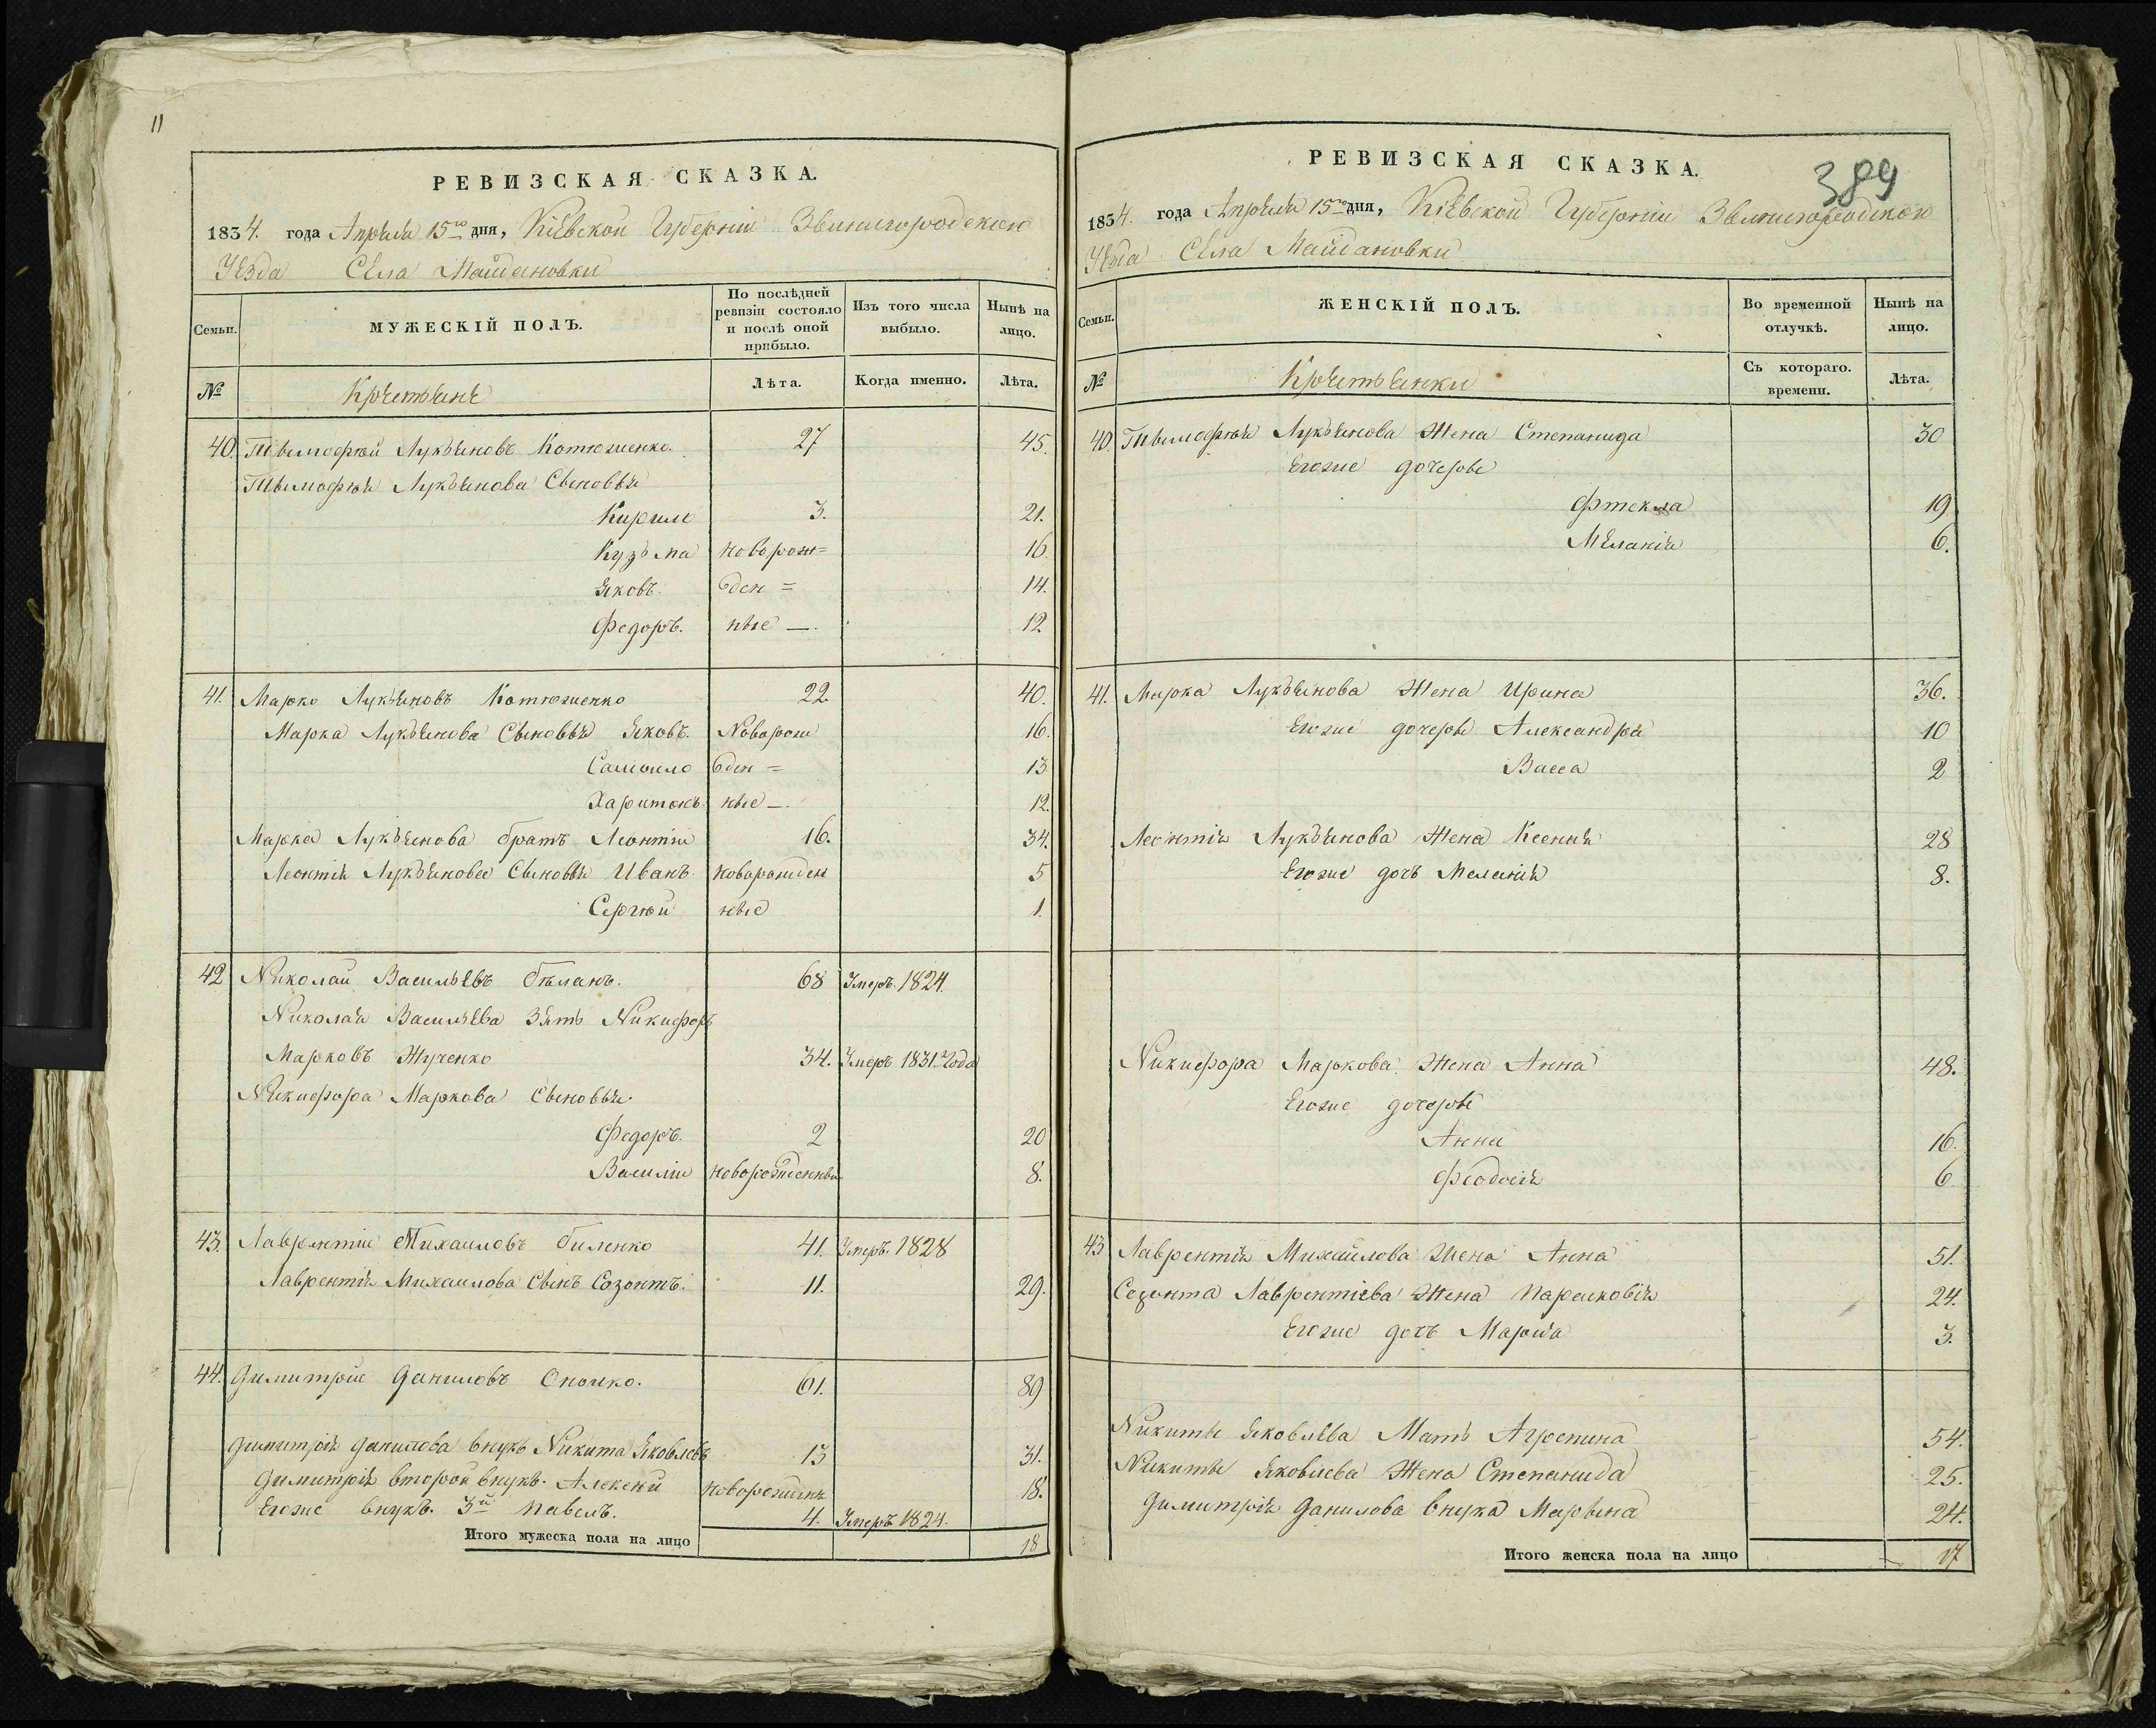 11
РЕВИЗСКАЯ СКАЗКА.
1834. года Апреля 15го дня, Кіевской Губерніи Звенигородскои
Уезда Села Майдановки
Семьи.
МУЖЕСКІЙ ПОЛЪ.
По послѣдней ревизіи состояло и послѣ оной прибыло.
Изъ того числа выбыло.
Нынѣ на лицо.
№ Крестьяне Лѣта. Когда именно. Лѣта.
40. Тимофѣй Лукьяновъ Котюженко. 27 45.
Тимофѣя Лукьянова Сыновья
Кирило 3. 21.
Кузьма новорож= 16.
Яковъ. ден = 14.
Федоръ. ные —. 12
41. Марко Лукьяновъ Котюженко 22. 40.
Марка Лукьянова Сыновья Яковъ. Новорож 16.
Самоило ден = 13
Харитонъ ные —. 12.
Марка Лукьянова братъ Леонтіи 16. 34.
Леонтія Лукьянова Сыновья Иванъ новорожден 5
Сергѣй ные 1.
42 Николаи Васильевъ Бѣланъ. 68 Умеръ. 1824.
Николая Васильева Зять Никифоръ
Марковъ Жученко 34. Умеръ 1831 Года
Никифора Маркова Сыновья.
Федоръ. 2 20
Василіи новорожденныи 8.
43. Лаврентіи Михаиловъ Биленко 41. Умеръ. 1828
Лаврентія Михаилова Сынъ Созонтъ. 11. 29.
44. Димитріи Даниловъ 61. 89
Димитрія Данилова внукъ Никита Яковлевъ 13 31.
Димитрія второй внукъ. Алексѣй новорожден 18.
Егоже внукъ. 3й Павелъ. 4. Умеръ 1824.
Итого мужеска пола на лицо 18
389
РЕВИЗСКАЯ СКАЗКА.
1834. года Апреля 15го дня, Кіевской Губерніи Звенигородскои
Уезда Села Майдановки
Семьи.
ЖЕНСКІЙ ПОЛЪ.
Во временной отлучкѣ.
Нынѣ на лицо.
№ Крестьянки Съ котораго. времени. Лѣта.
40. Тимофѣя Лукьянова Жена Степанида 30
Егоже дочеры
Фтекла 19
Меланія 6.
41. Марка Лукьянова Жена Ирина 36.
Егоже дочеры Александра 10
Васса 2
Леонтія Лукьянова Жена Ксенія 28
Егоже дочь Меланія 8.
Никифора Маркова Жена Анна 48.
Егоже дочеры
Анна 16.
Феодосія 6
43 Лаврентія Михайлова Жена Анна 51.
Созонта Лаврентіева Жена Парасковія 24.
Егоже дочь Марія 3.
Никиты Яковлева Мать Агрепина 54.
Никиты Яковлева Жена Степанида 25.
Димитрія Данилова внука Марьина 24.
Итого женска пола на лицо 17